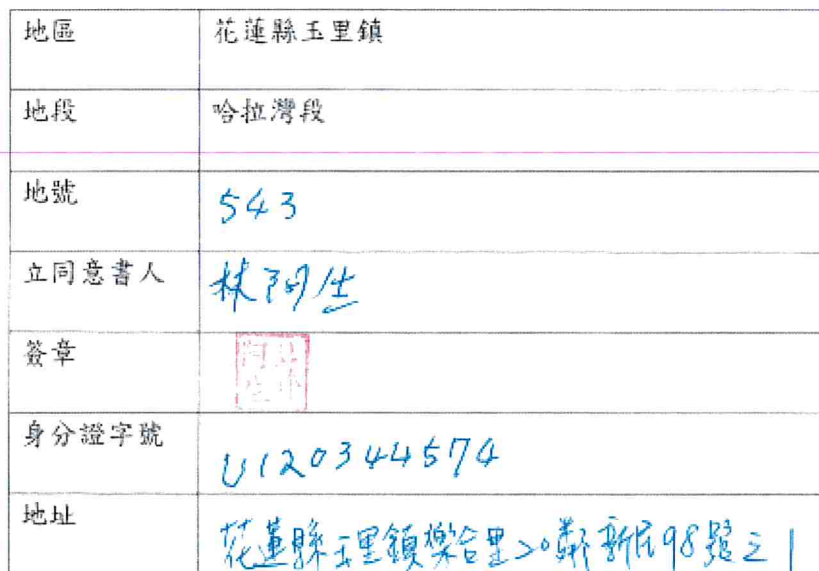 地區 花蓮縣玉里鎮
地段 哈拉灣段
地號 543
立同意書人 林阿生
簽章 林阿生
身分證字號 U120344574
地址 花蓮縣玉里鎮樂合里20鄰新民98號之1